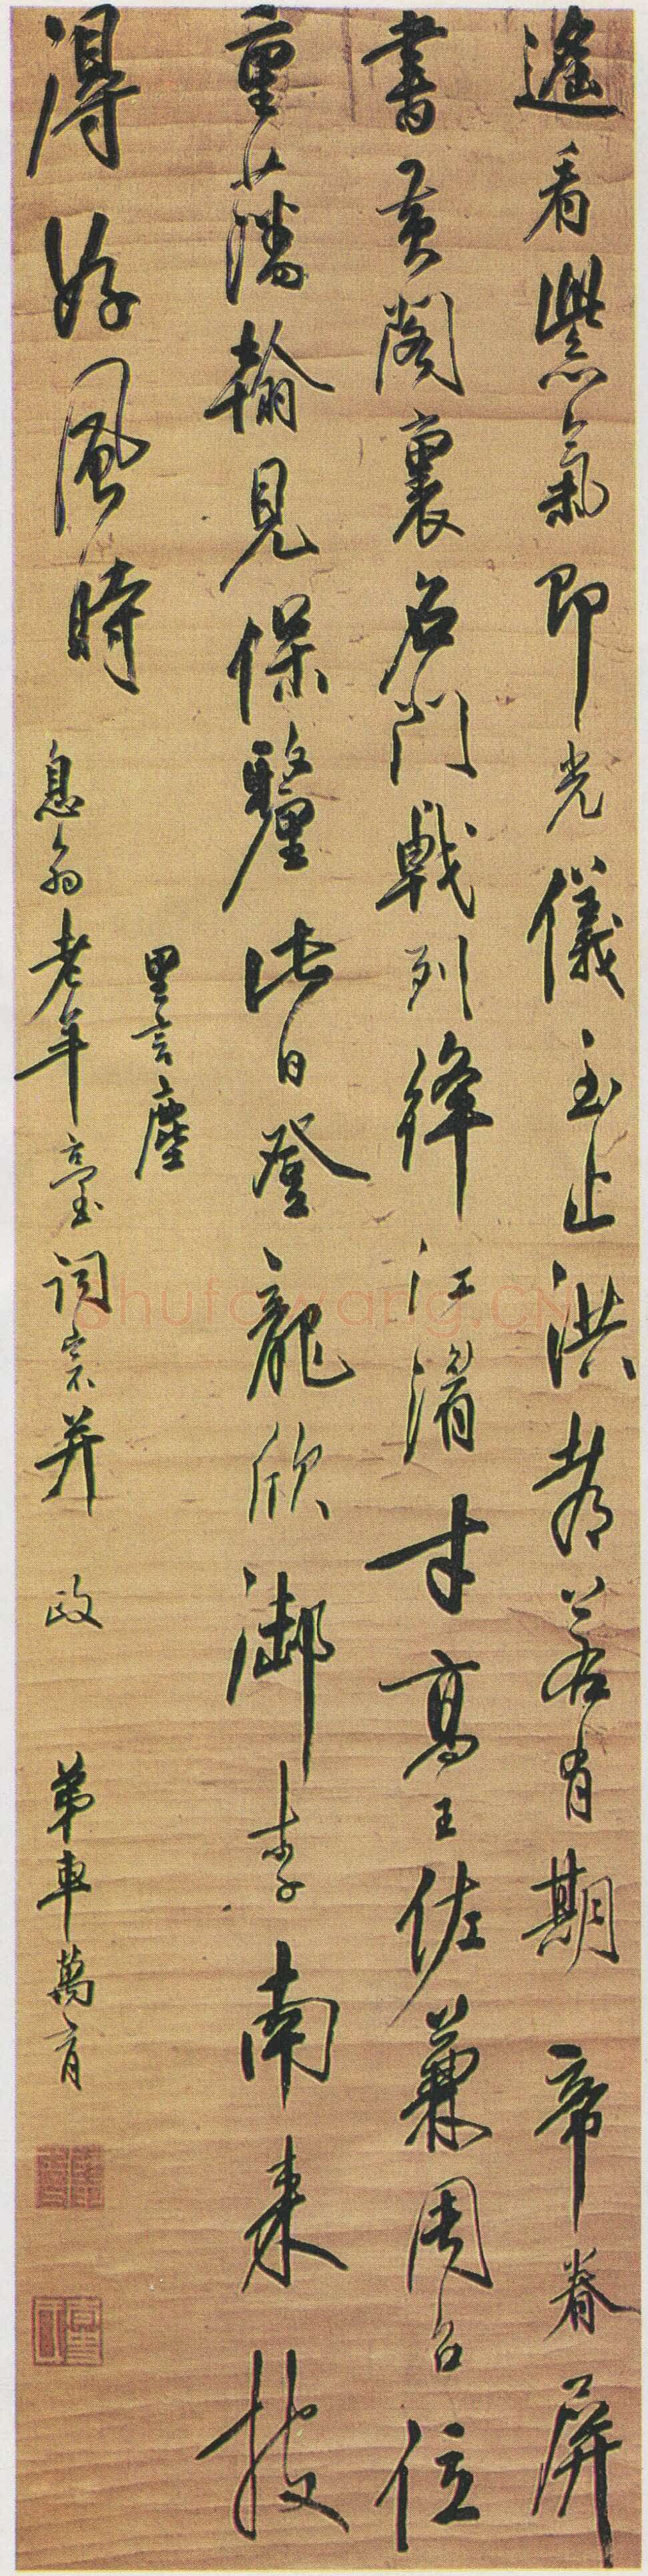 遙看紫氣即光儀至止洪都若有期帝眷屏
書黃閣裏名門戟列絳江湄才高王佐兼周召位
重藩翰見保釐此日登龍欣御李南來披
得好風時
里言塵
息翁老年臺詞宗并政 弟車萬育
shufawang.CN